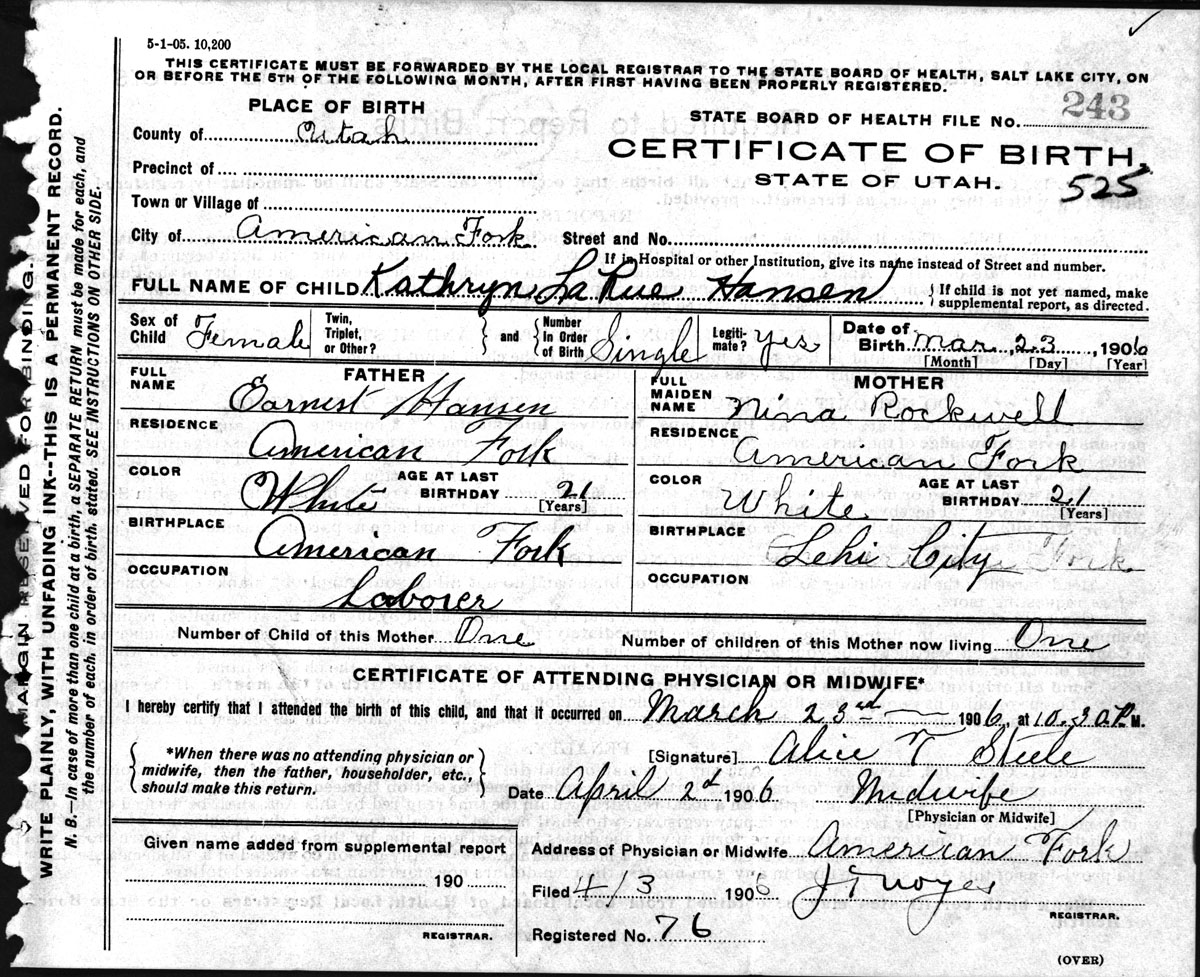 5-1-05. 10,200
THIS CERTIFICATE MUST BE FORWARDED BY THE LOCAL REGISTRAR TO THE STATE BOARD OF HEALTH, SALT LAKE CITY, ON
OR BEFORE THE 5TH OF THE FOLLOWING MONTH, AFTER FIRST HAVING BEEN PROPERLY REGISTERED.
PLACE OF BIRTH
STATE BOARD OF HEALTH FILE NO. 243
County of Utah
CERTIFICATE OF BIRTH,
Precinct of
STATE OF UTAH. 525
Town or Village of
City of American Fork Street and No.
If in Hospital or other Institution, give its name instead of Street and number.
FULL NAME OF CHILD Kathryn LaRue Hansen { If child is not yet named, make supplemental report, as directed.
Sex of Child Female Twin, Triplet, or Other? } and { Number in Order of Birth Single Legitimate? yes Date of Birth Mar 23, 1906
[Month] [Day] [Year]
FATHER
FULL NAME Earnest Hansen
RESIDENCE American Fork
COLOR White AGE AT LAST BIRTHDAY 21 [Years]
BIRTHPLACE American Fork
OCCUPATION Laborer
MOTHER
FULL MAIDEN NAME Nina Rockwell
RESIDENCE American Fork
COLOR White AGE AT LAST BIRTHDAY 21 [Years]
BIRTHPLACE Lehi City Fork
OCCUPATION
Number of Child of this Mother One Number of children of this Mother now living One
CERTIFICATE OF ATTENDING PHYSICIAN OR MIDWIFE*
I hereby certify that I attended the birth of this child, and that it occurred on March 23rd 1906, at 10.30 P.M.
{ *When there was no attending physician or midwife, then the father, householder, etc., should make this return. }
[Signature] Alice T Steele
Date April 2d 1906 Midwife
[Physician or Midwife]
Given name added from supplemental report
190
REGISTRAR.
Address of Physician or Midwife American Fork
Filed 4/3 1906 J F Noyes
REGISTRAR.
Registered No. 76
(OVER)
MARGIN RESERVED FOR BINDING.
WRITE PLAINLY, WITH UNFADING INK--THIS IS A PERMANENT RECORD.
N. B.—In case of more than one child at a birth, a SEPARATE RETURN must be made for each, and
the number of each, in order of birth, stated. SEE INSTRUCTIONS ON OTHER SIDE.